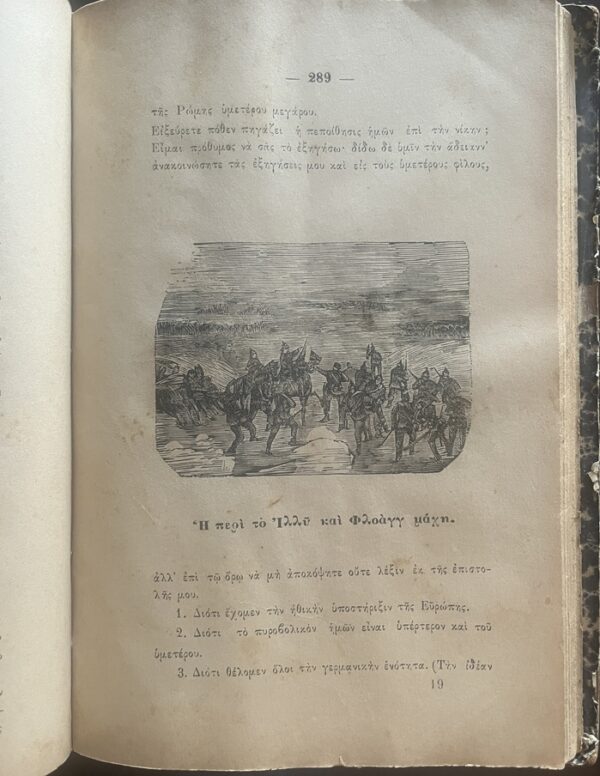 — 289 —
τῆς Ρώμης ὑμετέρου μεγάρου.
Εἰξεύρετε πόθεν πηγάζει ἡ πεποίθησις ἡμῶν ἐπὶ τὴν νίκην ;
Εἶμαι πρόθυμος νὰ σᾶς τὸ ἐξηγήσω· δίδω δὲ ὑμῖν τὴν ἄδειαν ν'
ἀνακοινώσητε τὰς ἐξηγήσεις μου καὶ εἰς τοὺς ὑμετέρους φίλους,
Ἡ περὶ τὸ Ἰλλῦ καὶ Φλοὰγγ μάχη.
ἀλλ' ἐπὶ τῷ ὅρῳ νὰ μὴ ἀποκόψητε οὔτε λέξιν ἐκ τῆς ἐπιστο-
λῆς μου.
1. Διότι ἔχομεν τὴν ἠθικὴν ὑποστήριξιν τῆς Εὐρώπης.
2. Διότι τὸ πυροβολικὸν ἡμῶν εἶναι ὑπέρτερον καὶ τοῦ
ὑμετέρου.
3. Διότι θέλομεν ὅλοι τὴν γερμανικὴν ἑνότητα. (Τὴν ἰδέαν
19